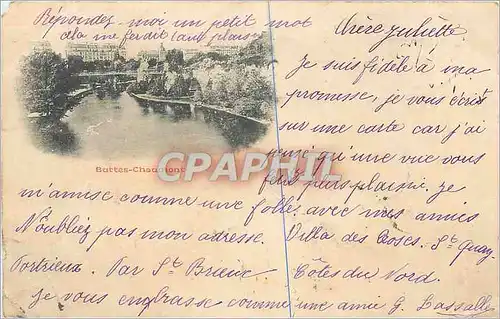 Répondez-moi un petit mot
cela me ferait tant plaisir
Chère Juliette.
Je suis fidèle à ma
promesse, je vous écris
sur une carte car j'ai
pensé qu'une vue vous
ferait plus plaisir. Je
Buttes-Chaumont
CPARPHIL
m'amuse comme une folle, avec mes amies
N'oubliez pas mon adresse. Villa des Roses. St Quay
Portrieux. Par St Brieuc Côtes du Nord.
Je vous embrasse comme une amie G. Lassalle